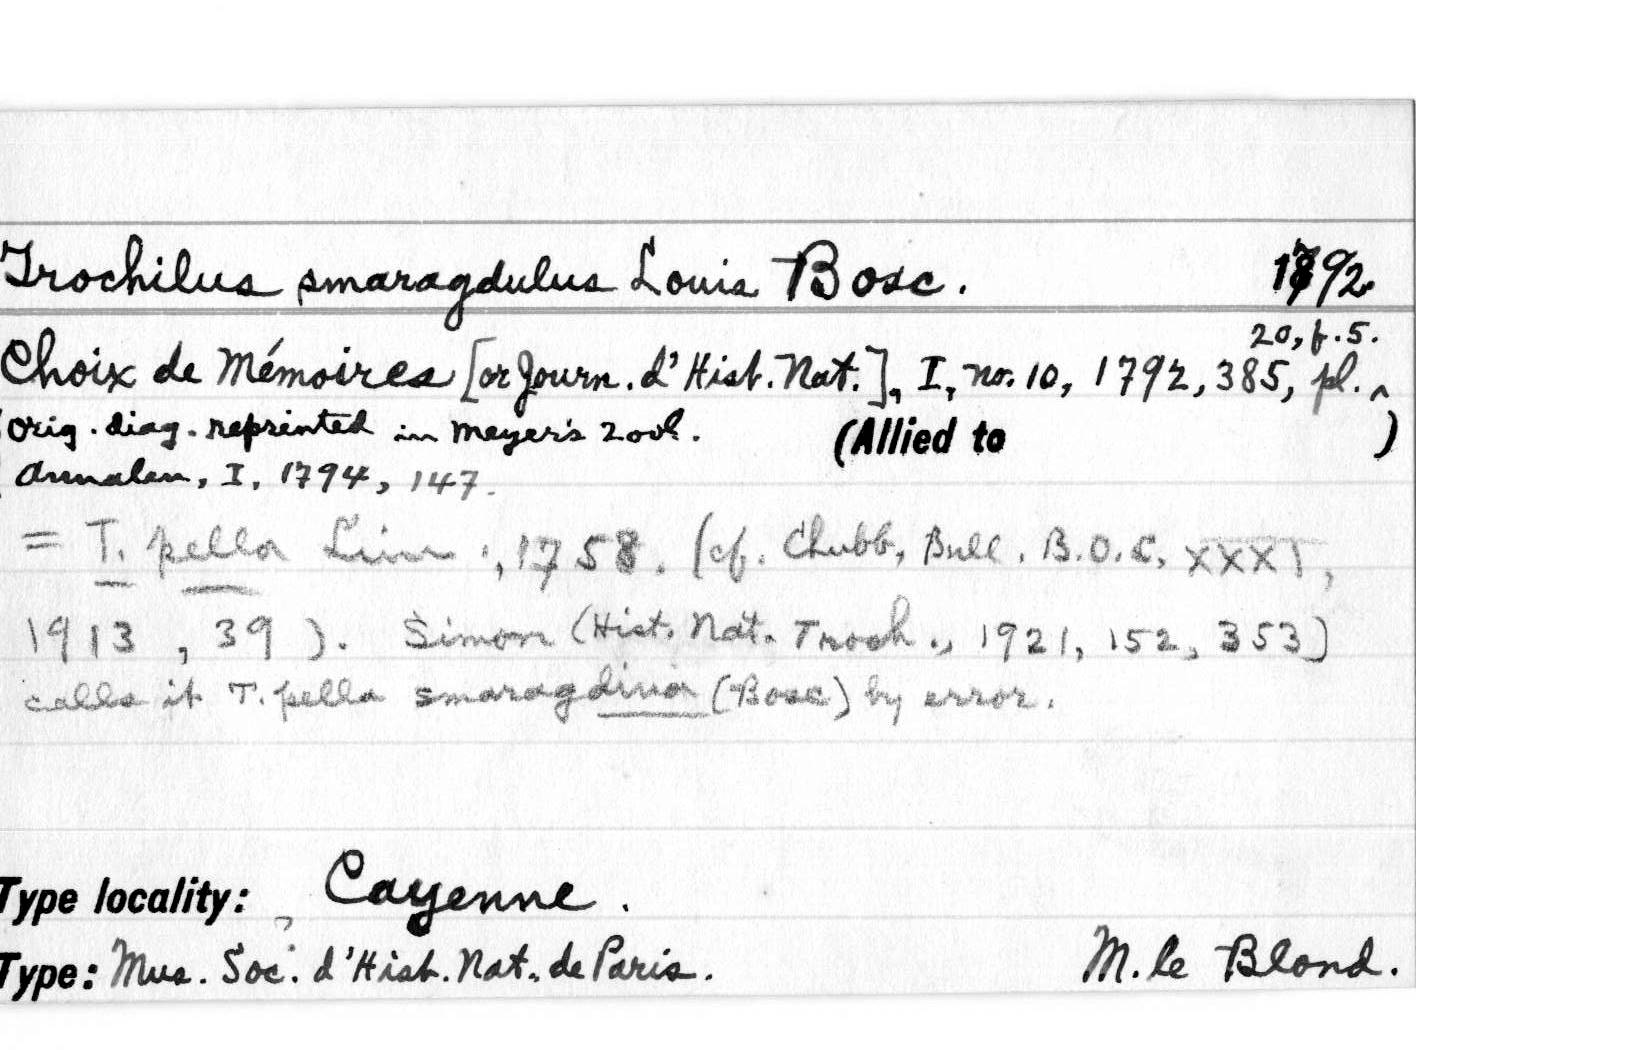 Trochilus smaragdulus Louis Bosc. 1792.
20, f. 5.
Choix de Mémoires [or Journ. d'Hist. Nat.], I, no. 10, 1792, 385, pl. ^
Orig. diag. reprinted in Meyer's Zool. (Allied to )
Annalen, I, 1794, 147.
= T. pella Linn., 1758. (cf. Chubb, Bull. B.O.C. XXXI,
1913, 39). Simon (Hist. Nat. Troch., 1921, 152, 353)
calls it T. pella smaragdina (Bosc) by error.
Type locality: Cayenne.
Type: Mus. Soc. d'Hist. Nat. de Paris. M. le Blond.